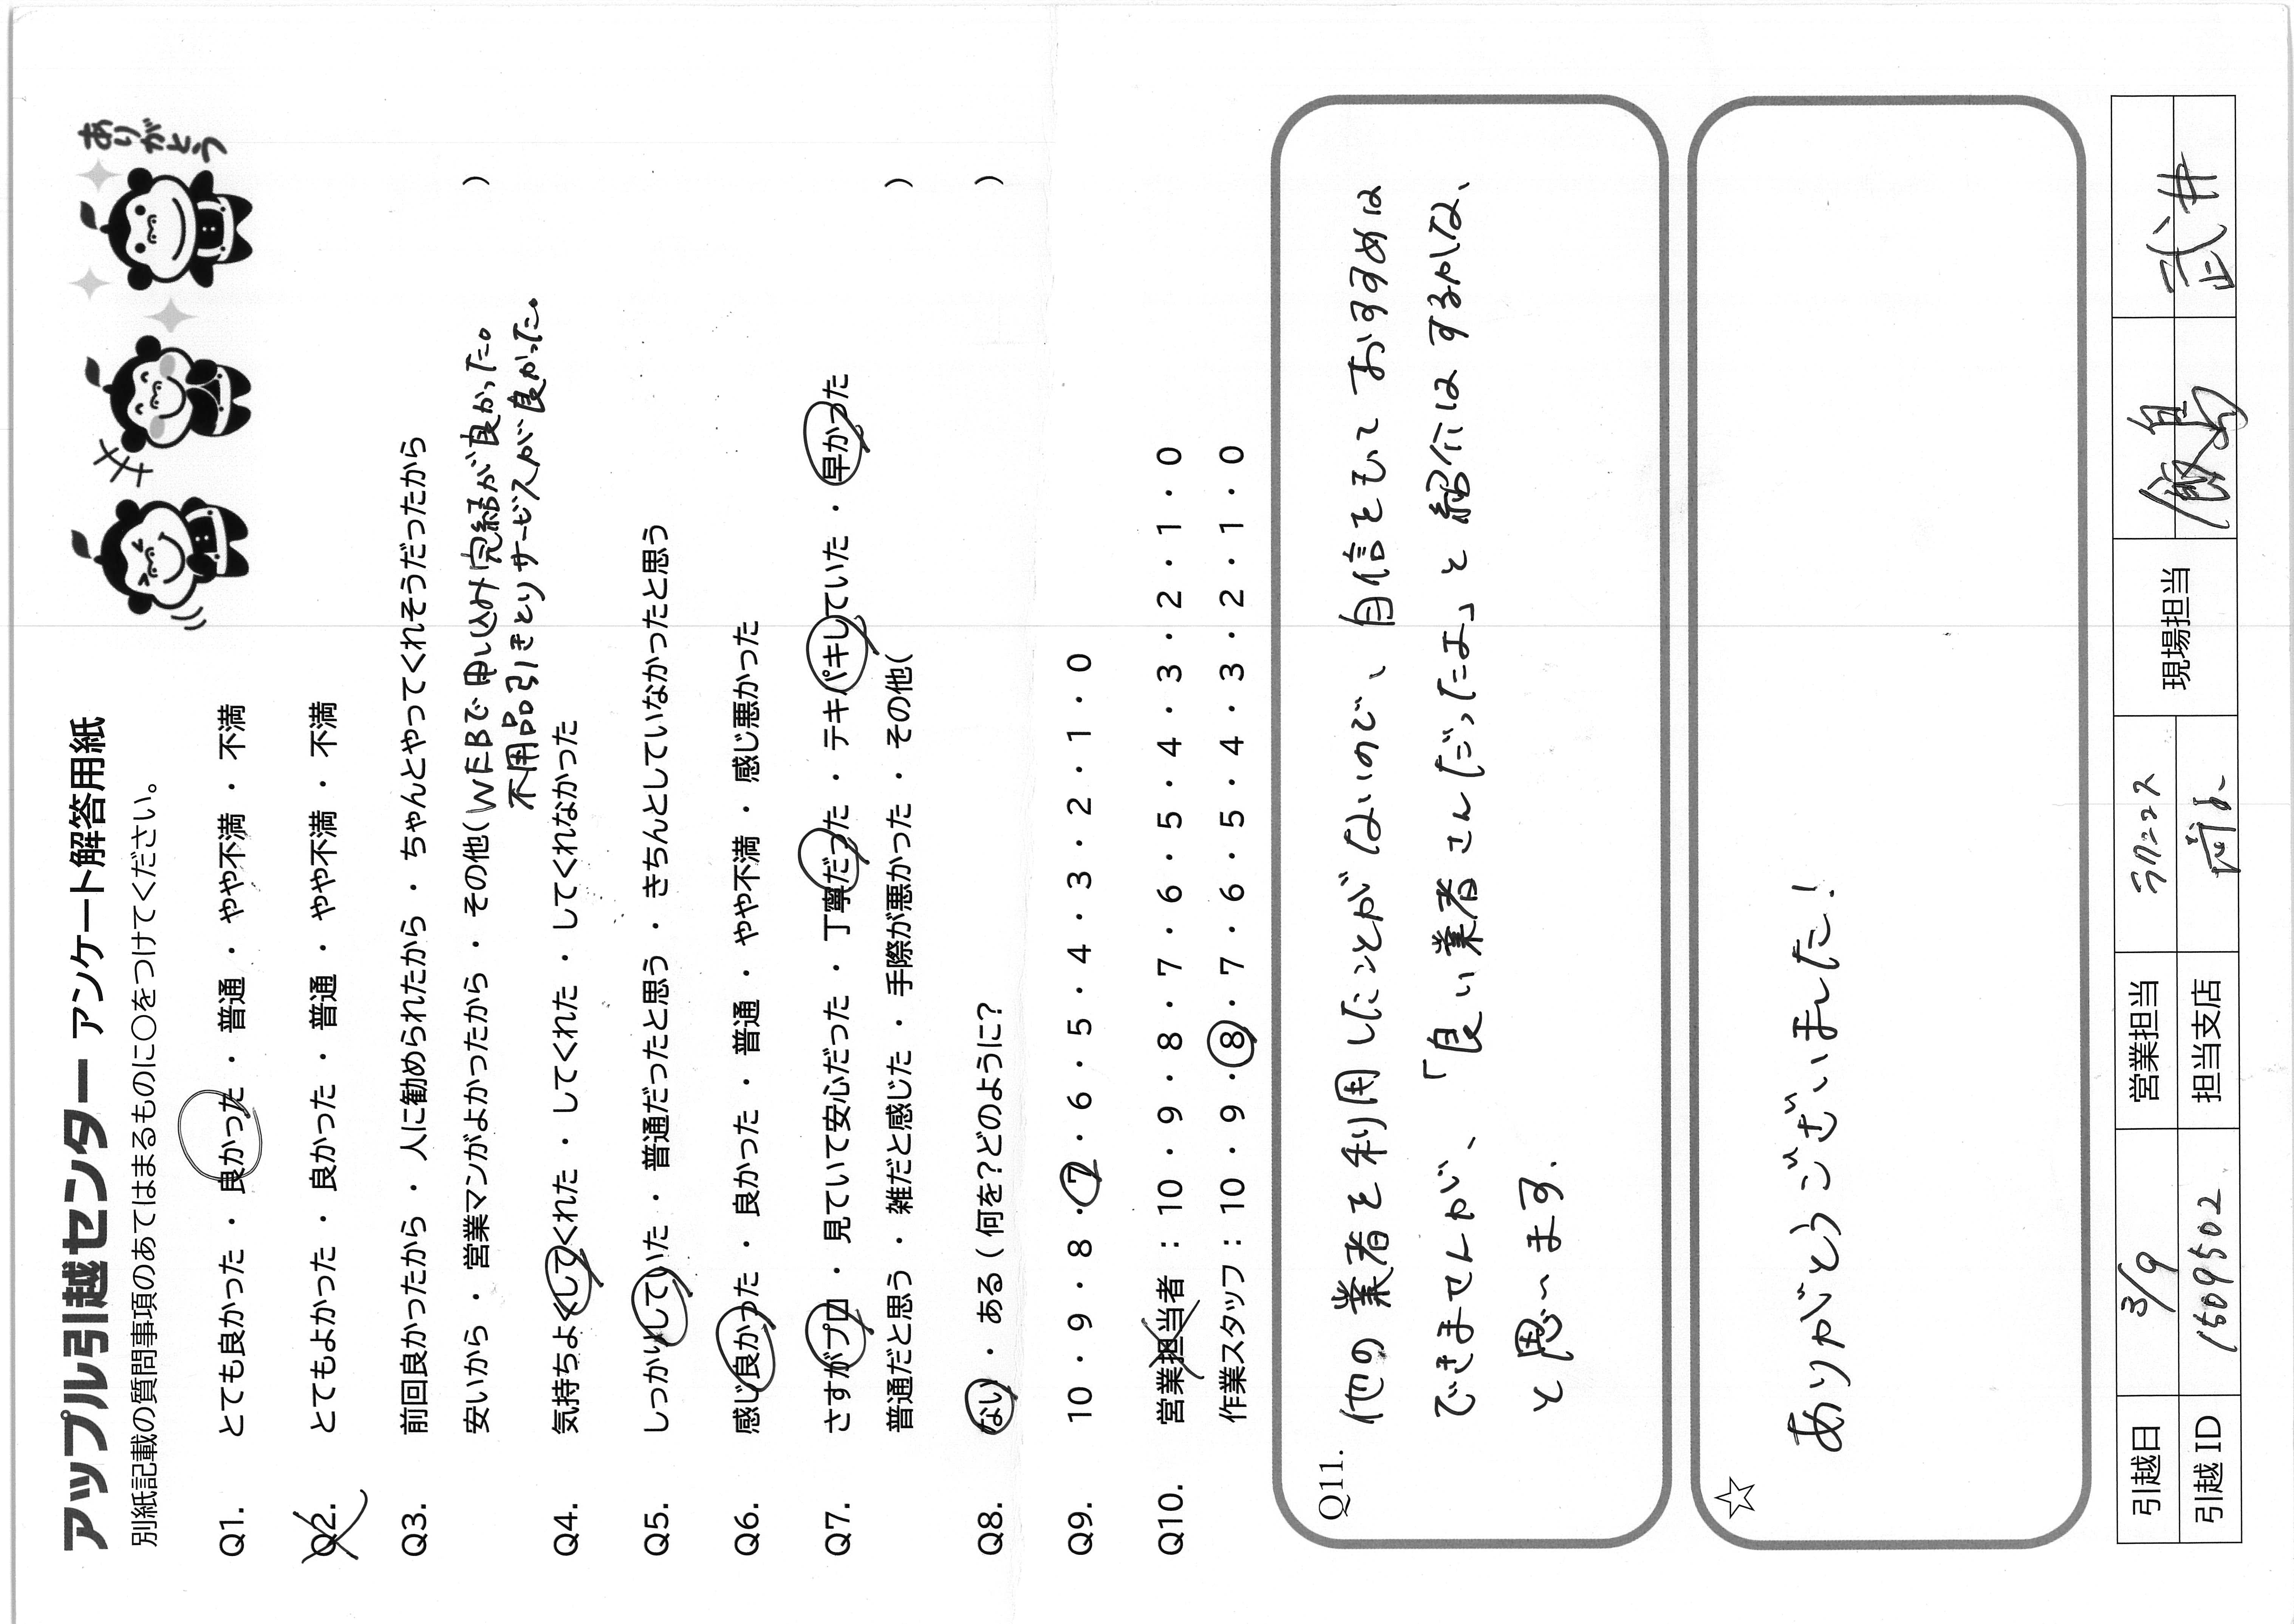 アップル引越センター アンケート解答用紙
別紙記載の質問事項のあてはまるものに〇をつけてください。
ありがとう
Q1. とても良かった ・ 良かった ・ 普通 ・ やや不満 ・ 不満
Q2. とてもよかった ・ 良かった ・ 普通 ・ やや不満 ・ 不満
Q3. 前回良かったから ・ 人に勧められたから ・ ちゃんとやってくれそうだったから
安いから ・ 営業マンがよかったから ・ その他( WEBで申し込み完結が良かった。 )
不用品引きとりサービスが良かった。
Q4. 気持ちよくしてくれた ・ してくれた ・ してくれなかった
Q5. しっかりしていた ・ 普通だったと思う ・ きちんとしていなかったと思う
Q6. 感じ良かった ・ 良かった ・ 普通 ・ やや不満 ・ 感じ悪かった
Q7. さすがプロ ・ 見ていて安心だった ・ 丁寧だった ・ テキパキしていた ・ 早かった
普通だと思う ・ 雑だと感じた ・ 手際が悪かった ・ その他( )
Q8. ない ・ ある ( 何を?どのように? )
Q9. 10 ・ 9 ・ 8 ・ 7 ・ 6 ・ 5 ・ 4 ・ 3 ・ 2 ・ 1 ・ 0
Q10. 営業担当者 : 10 ・ 9 ・ 8 ・ 7 ・ 6 ・ 5 ・ 4 ・ 3 ・ 2 ・ 1 ・ 0
作業スタッフ : 10 ・ 9 ・ 8 ・ 7 ・ 6 ・ 5 ・ 4 ・ 3 ・ 2 ・ 1 ・ 0
Q11. 他の業者を利用したことがないので、自信をもっておすすめは
できませんが、「良い業者さんだったよ」と紹介はするかな、
と思います.
☆
ありがとうございました!
引越日 3/9 営業担当 ラクニコス 現場担当 飯島 武井
引越 ID 1509502 担当支店